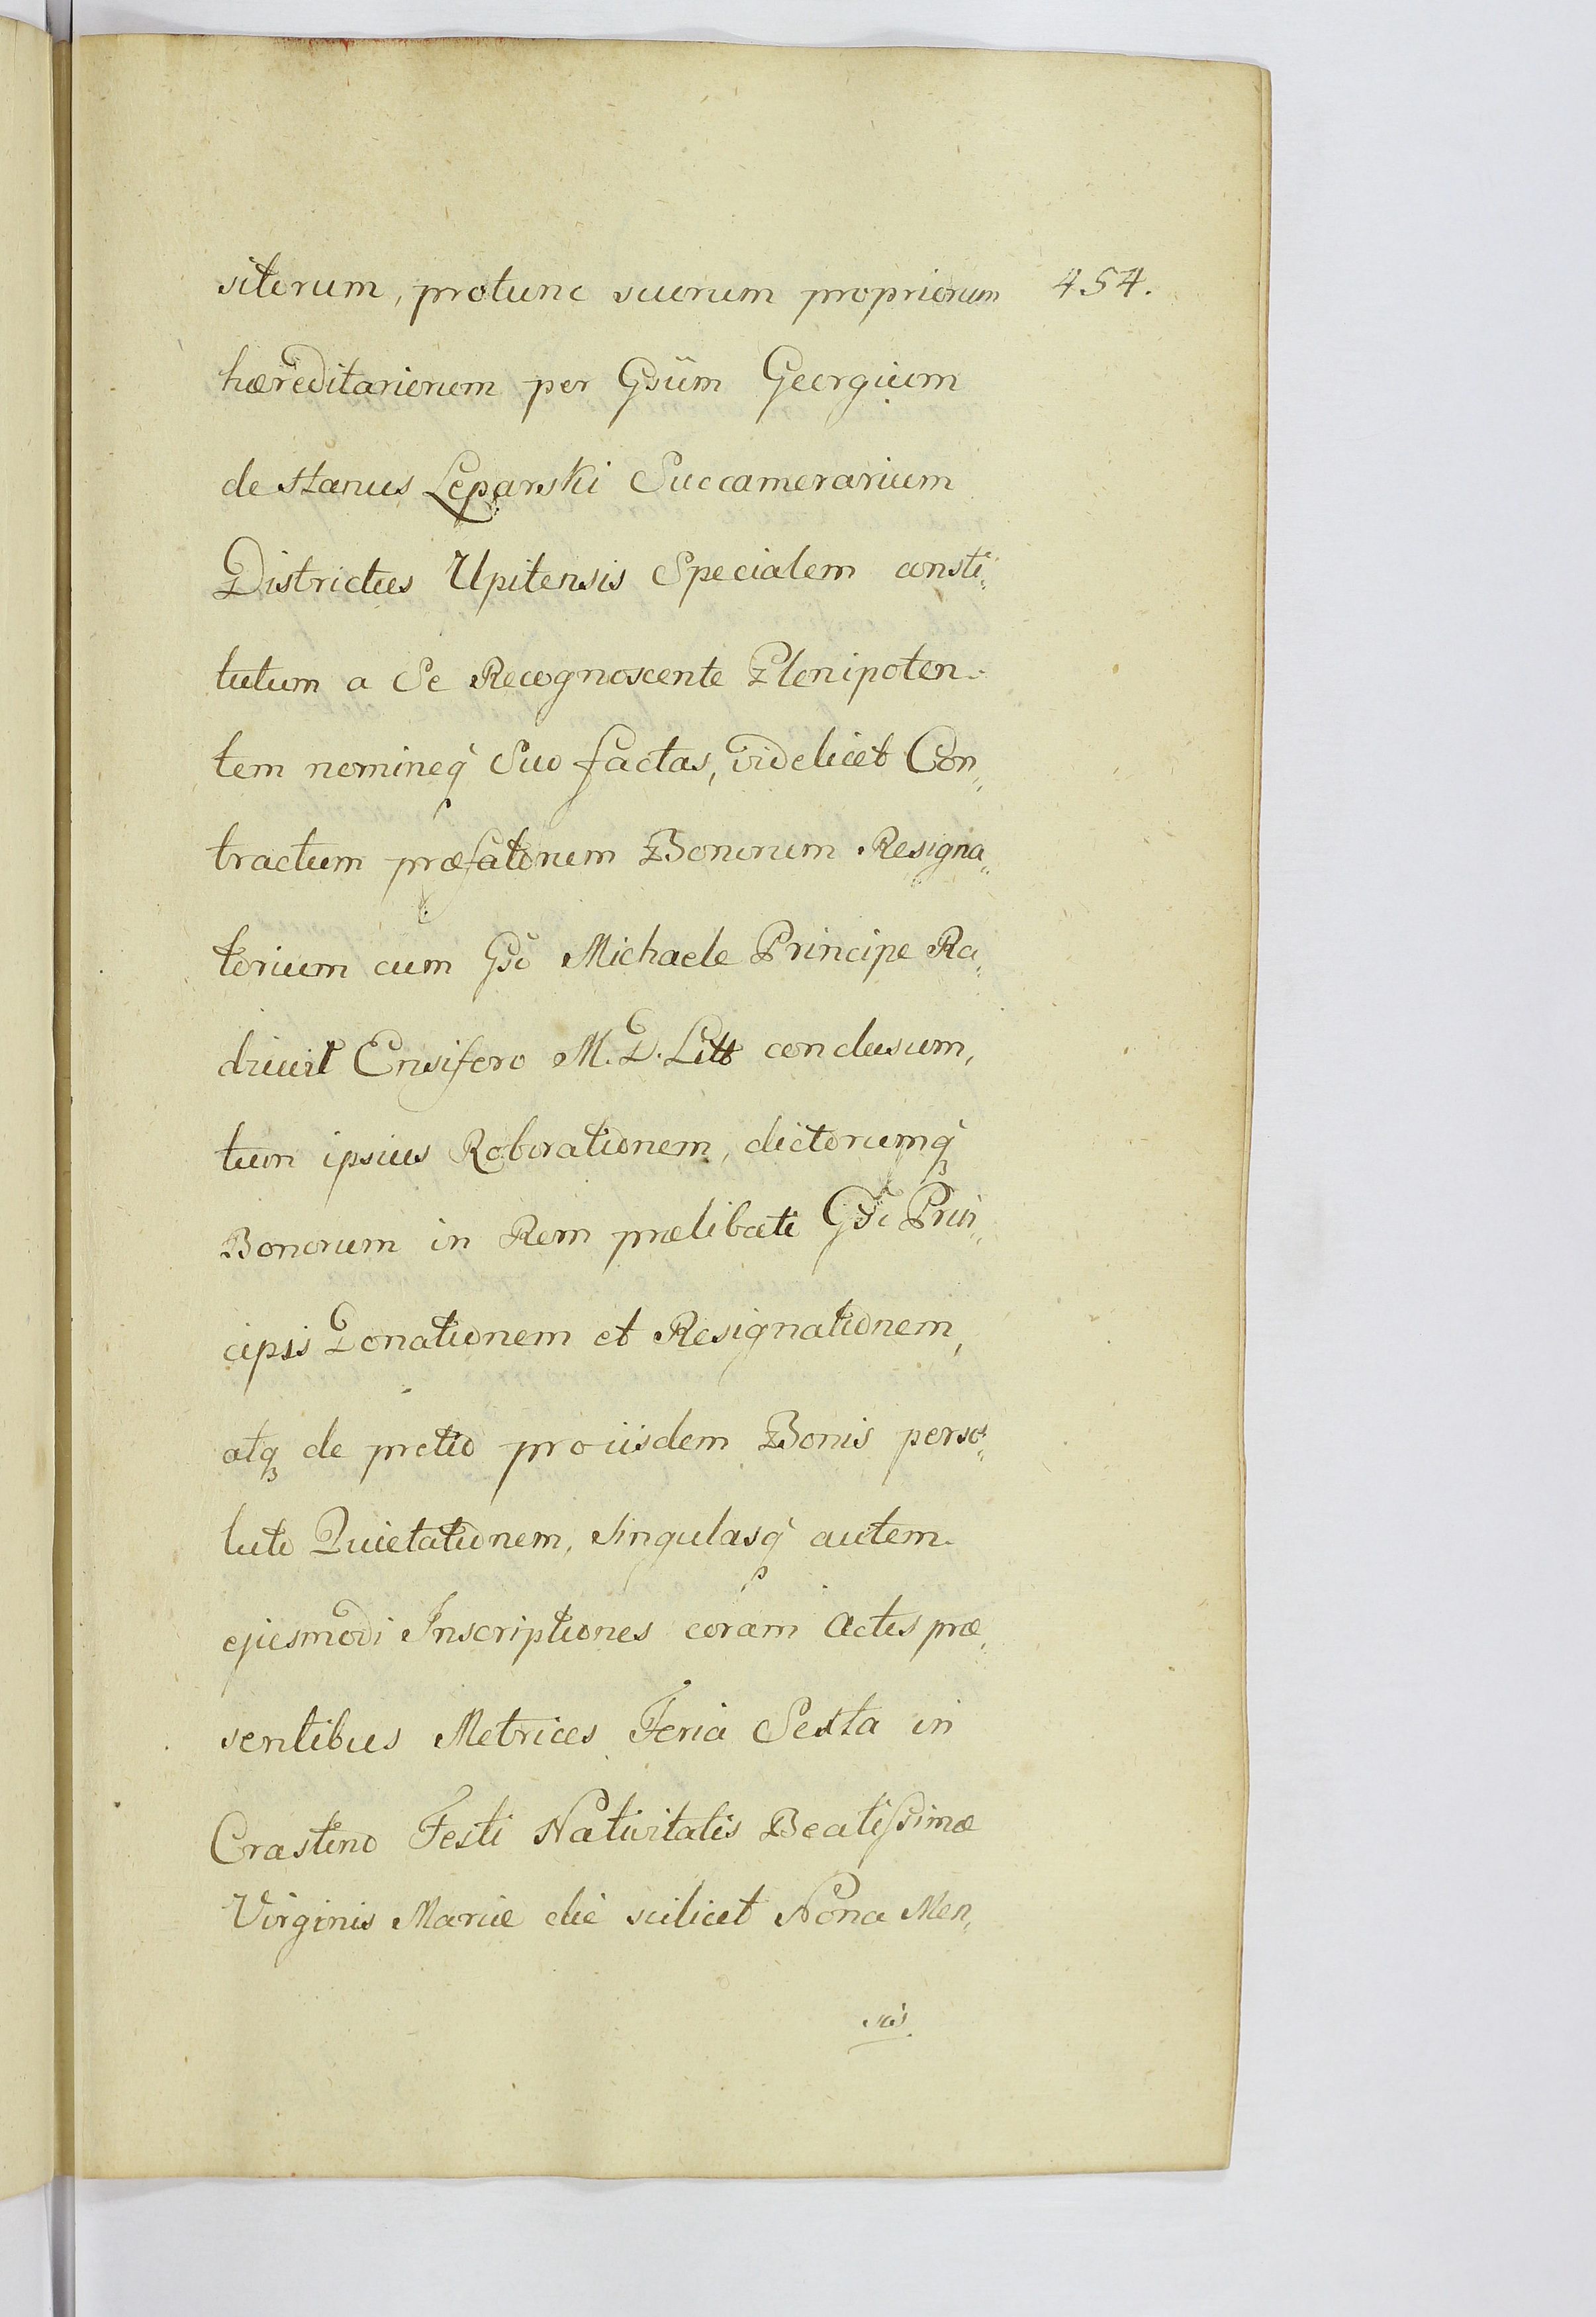 sitorum, protunc suorum propriorum 454.
hæreditariorum per Gsum Georgium
de stanus Leparski Succamerarium
Districtus Upitensis Specialem consti„
tutum a Se Recognoscente Plenipoten„
tem nomineq́ Suo factas, videlicet Con„
tractum præfatorum Bonorum Resigna„
torium cum Gso Michaele Principe Ra„
diwił Ensifero M. D. Litt conclusum,
tum ipsius Roborationem, dictorumq́
Bonorum in Rem prælibati Gsi Prin„
cipis Donationem et Resignationem,
atq́ de pretio pro iisdem Bonis perso„
luto Quietationem, singulasq́ autem
ejusmodi Inscriptiones coram Actis præ„
sentibus Metrices Feria Sexta in
Crastino Festi Nativitatis Beatissimæ
Virginis Mariæ die scilicet Nona Men„
sis